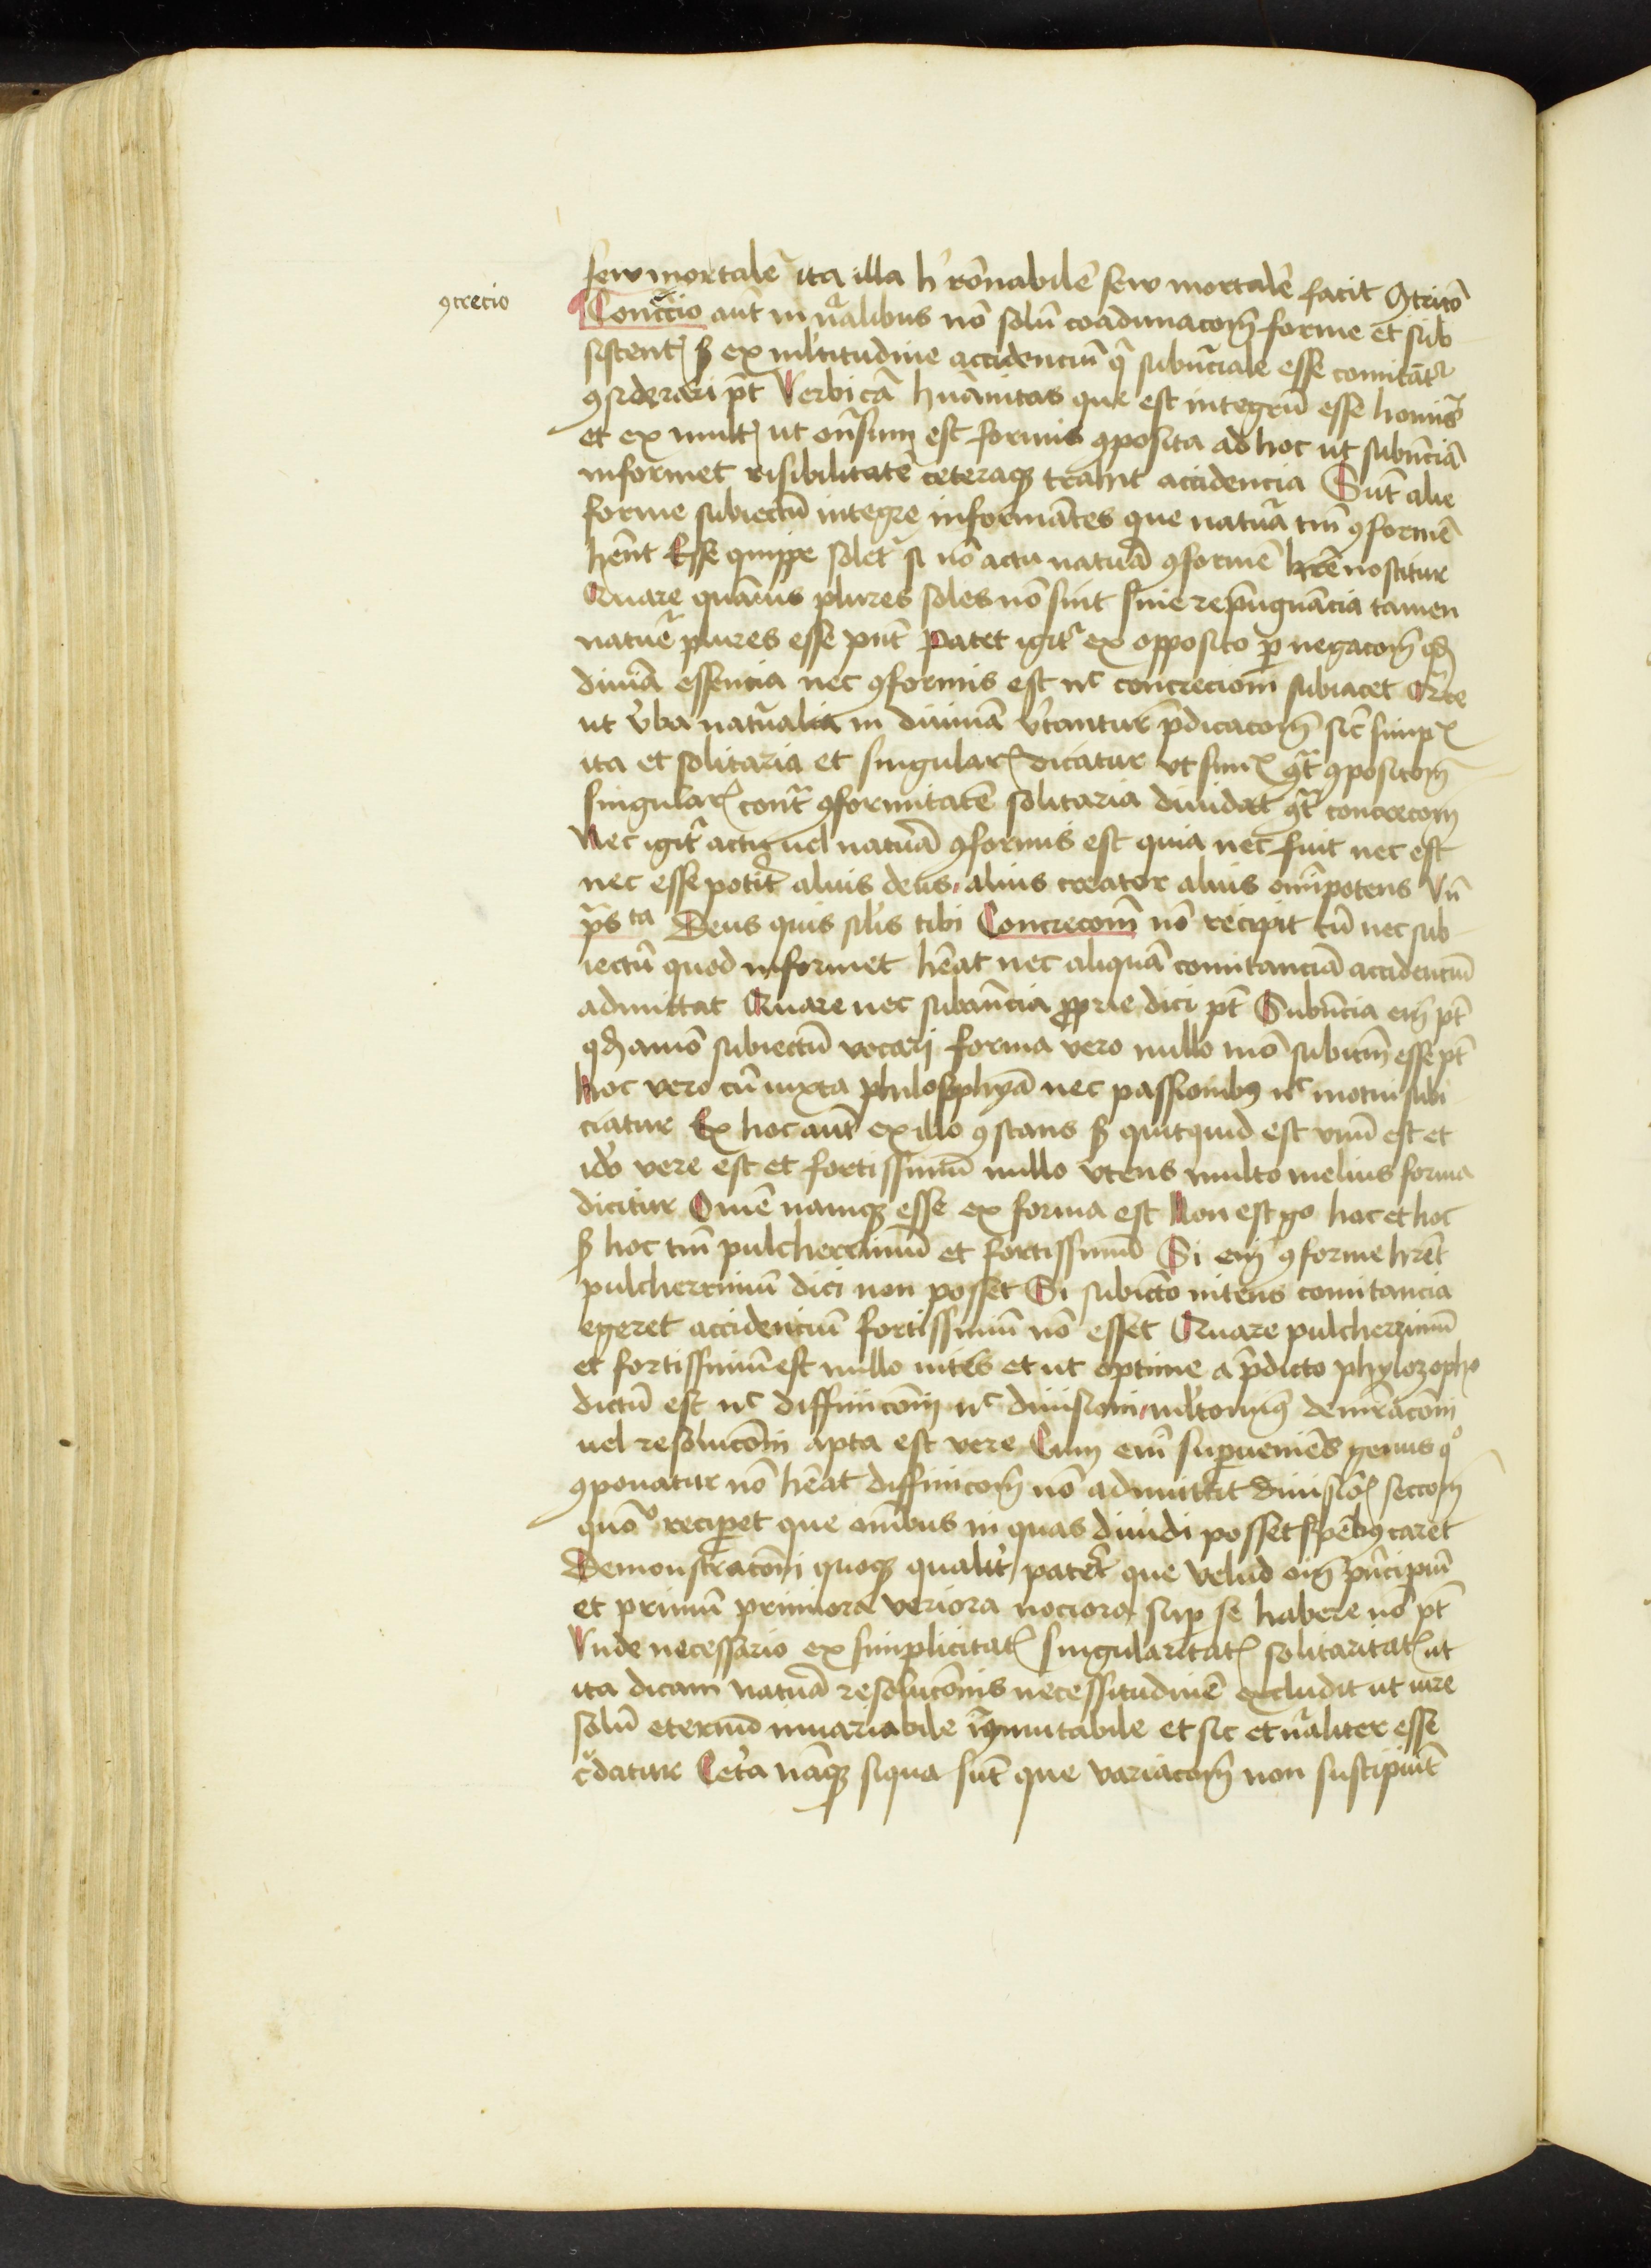 ꝯcrecio
seu mortalē ita illa h̄ rōnabilē seu mortalē facit
Concrecio aūt in nālibus nō solū coadunacōm̄ forme et sub
sistent̄ sꝫ ex ml'titudine accidenciū q̄ subn̄ciale esse comitāt᷑
ꝯsiderari pt̄ Verbi cā huānitas que est integrū esse homīs
et ex mult̄ ut on̄sum est formis ꝯposita ad hoc ut subn̄ciā
informet risibilitatē ceteraqꝫ trahit accidencia Sūt alie
forme subiectū integre informātes que natuā tm̄ ꝯformē
hēnt Esse quippe solet si nō actu natuā ꝯformē hr̄e noscitur
Quare quāuis plures soles nō sint sine repūgnācia tamen
natuē plures esse pn̄t Patet igit᷑ ex opposito ꝑ negacōm̄ qd̄
diuīa essencia nec ꝯformis est nᶜ concrecioni subiacet
ut v̓ba natuᷓalia in diuinā v̓tantur p̄dicacōm̄ sic̄ simpꝉ
ita et solitaria et singularꝭ dicatur vt ꝯpositōm̄
singularꝭ cont᷑ ꝯformitatē solitaria diuidat ꝯt᷑ concrecōm̄
Nec igit᷑ actu uel natuā ꝯformis est quia nec fuit nec est
nec esse pot̓it alius deus, alius creator alius om̄ipotens Vn̄
p̄sta Deus quis sil̓is tibi Concrecōm̄ nō recipit cū nec sub
iectū quod informet hēat nec aliquā comitanciā accidenciū
admittat Quare nec subn̄cia ꝓprie dici pt̄ Subn̄cia em̄ pt̄
qd̄amō subiectū vocari forma vero nullo mō subiectū esse pt̄
Hoc vero cū iuxta philosophyā nec passionibꝰ nᶜ motui subi
ciatur Ex hoc aūt ex illo ꝯstans sꝫ quitquid est vnū est et
iᵈo vere est et fortissimū nullo vtens multo melius forma
dicitur Omē namqꝫ esse ex forma est Non est gᵒ hoc et hoc
sꝫ hoc tm̄ pulcherrimū et fortissimū Si em̄ ꝯforme hr̄et
pulcherrimū dici non posset Si subiecto nitens comitancia
egeret accidenciū fortissimū nō esset Quare pulcherrimū
et fortissimū est nullo nitēs et ut optime a p̄dicto phylozopho
dictū est nᶜ diffinicōni nᶜ diuisioni,
uel resolucōni apta est vere Cum em̄ suꝑueniēs genus qᵒ
ꝯponatur nō hēat diffinicōm̄ nō admittit diuisiōꝭ seccōm̄
quōᵒ reciꝑet que om̄ibus in quas diuidi posset sp̄ēbꝰ caret
Demonstracōni quoqꝫ qualit̓ pat̓et que velud oīm̄ pn̄cipiū
et primū primiora veriora nociora suꝑ se habere nō pt̄
Vnde necessario ex simplicitatꝭ singularitatꝭ solitaritatꝭ ut
ita dicam natuā resolucōnis necessitudinē excludit ut iure
solū eternū inuariabile īmutabile et sic et nāliter esse
c̓datur Cet̓a nāqꝫ siqua sūt que variacōm̄ non suscipiūt